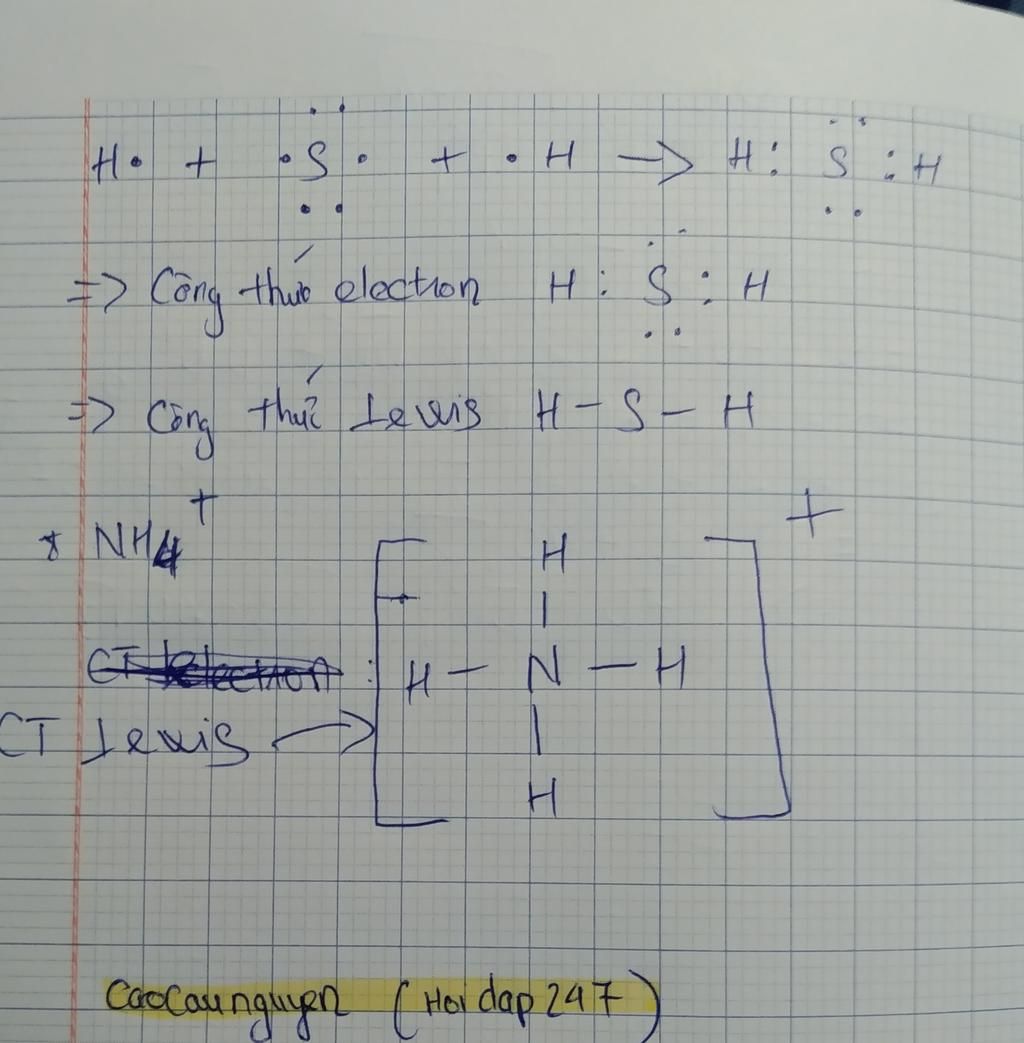 H• + •S̈• + •H → H: S̈ :H
⇒ Công thức electron H : S̈ : H
⇒ Công thức Lewis H – S – H
* NH₄⁺
[ H +
|
H – N – H
CT Lewis →
|
H ]
Caocaunguyen (Hoidap247)